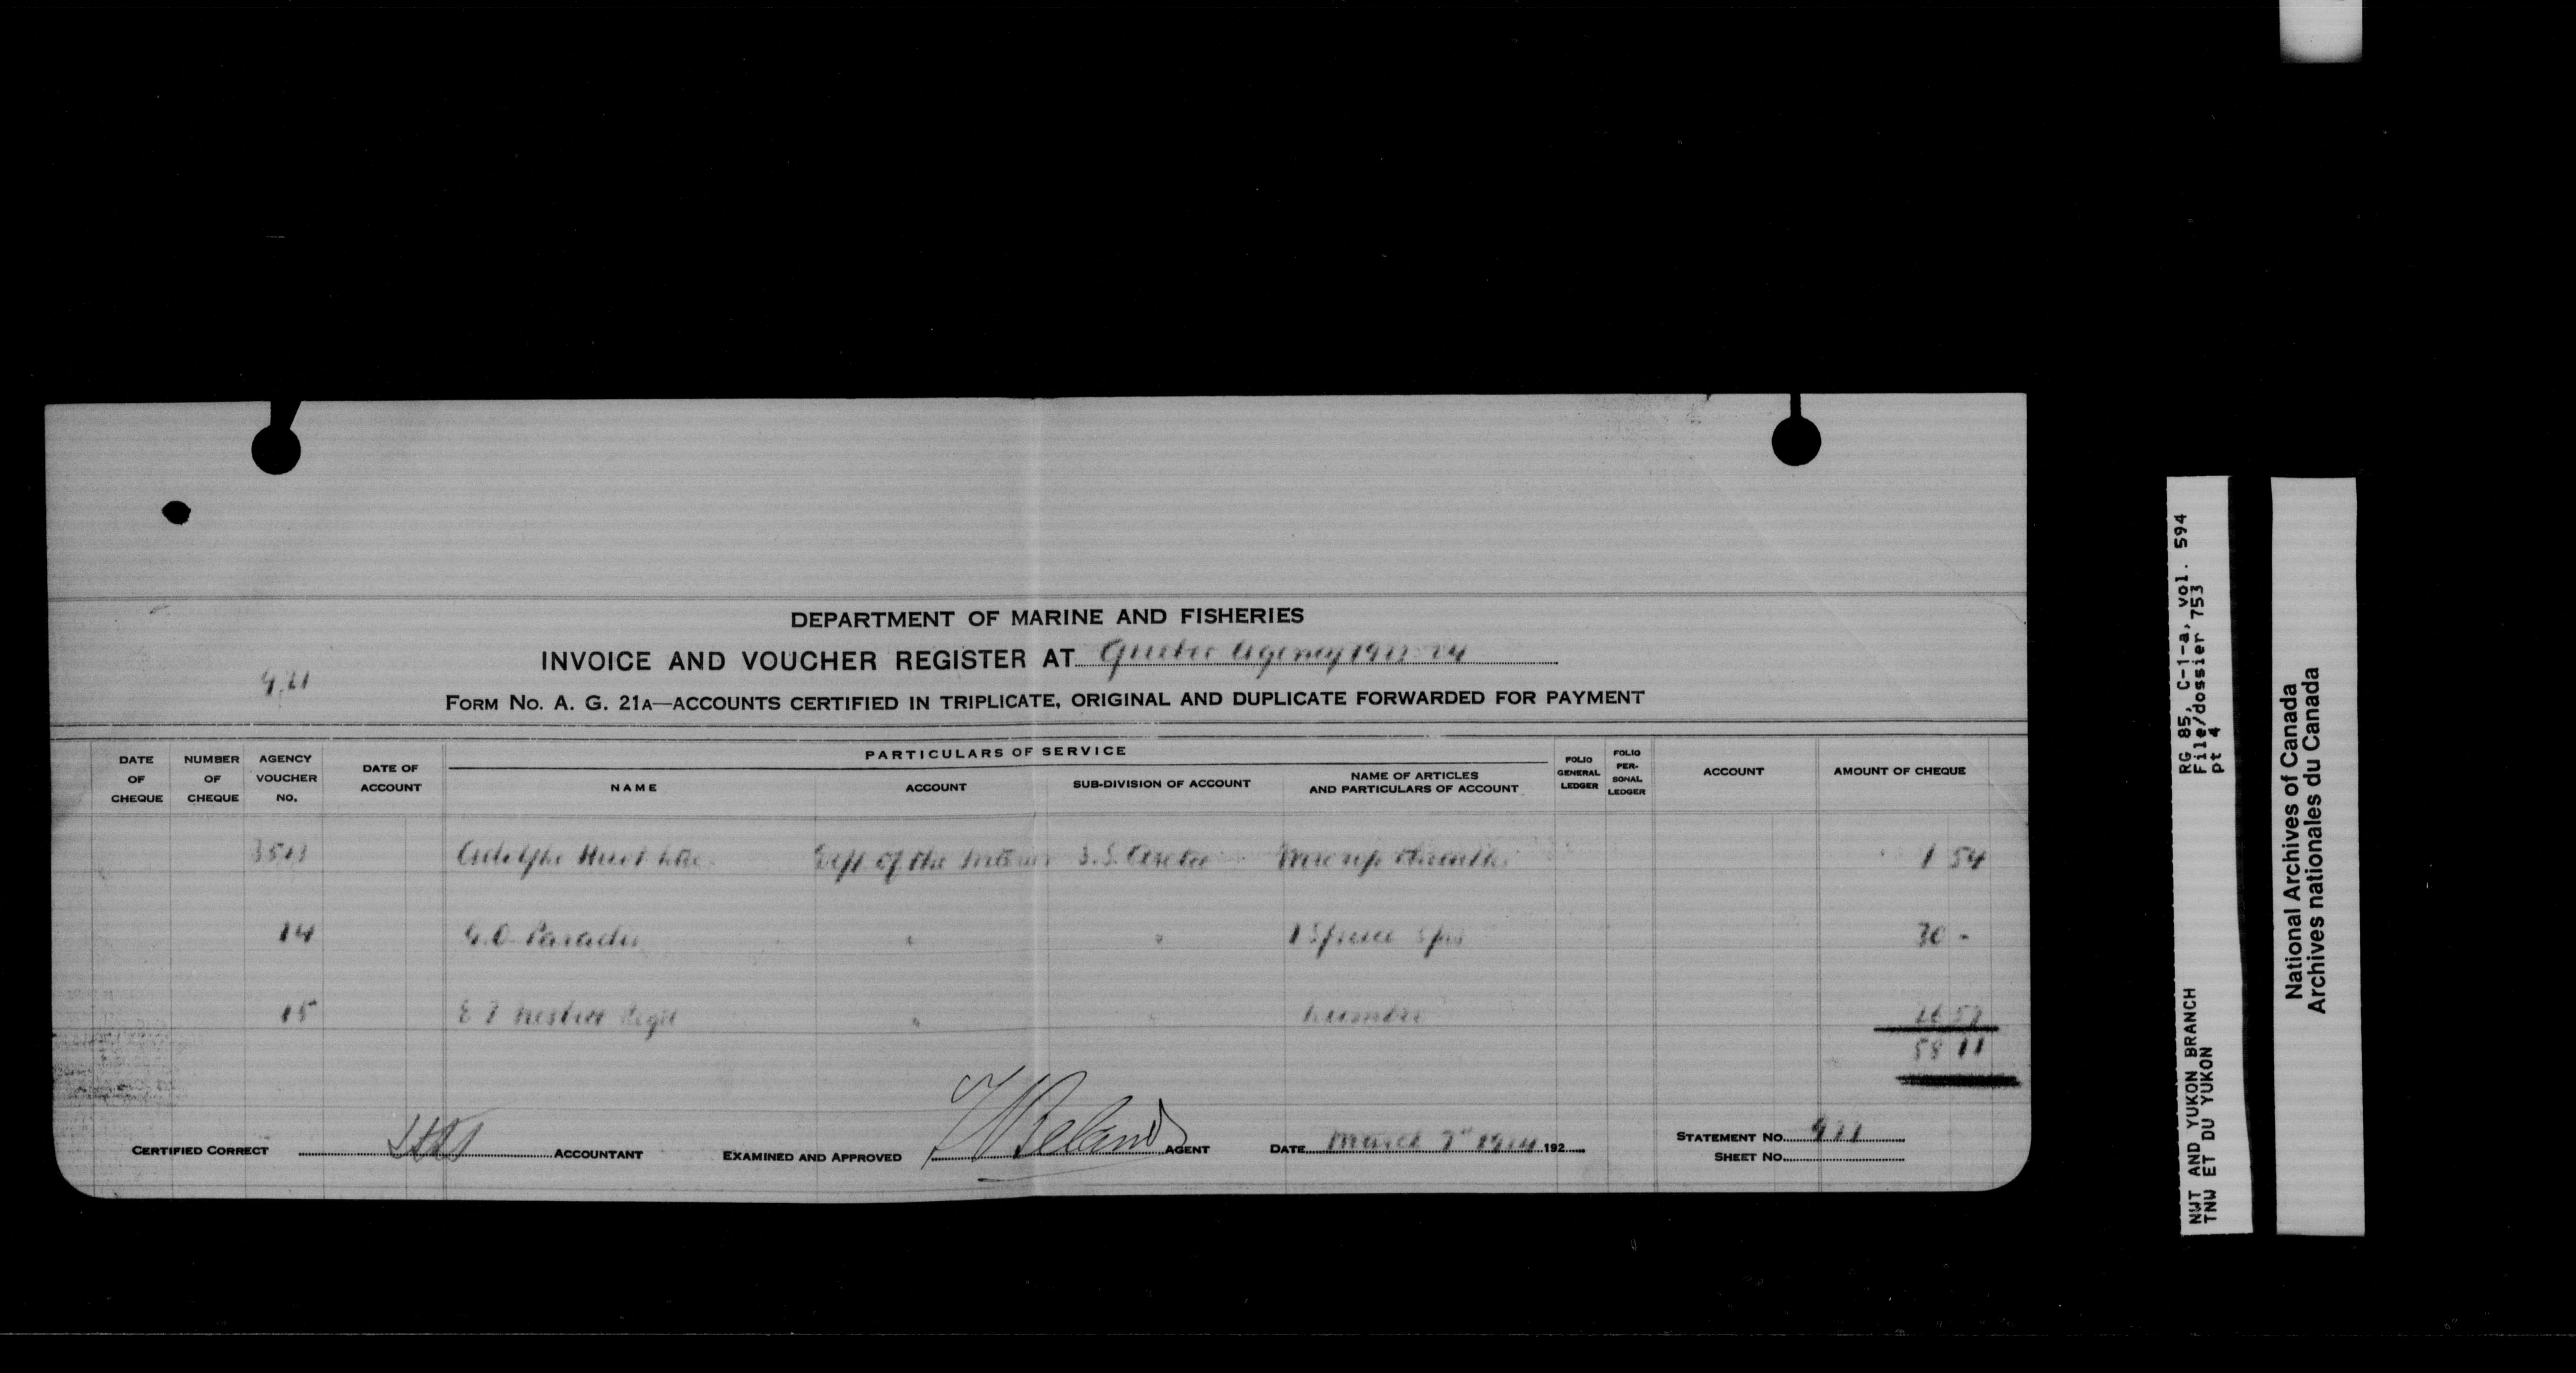 DEPARTMENT OF MARINE AND FISHERIES
INVOICE AND VOUCHER REGISTER AT Quebec Agency 1923-24
FORM NO. A. G. 21A—ACCOUNTS CERTIFIED IN TRIPLICATE, ORIGINAL AND DUPLICATE FORWARDED FOR PAYMENT
DATE OF CHEQUE
NUMBER OF CHEQUE
AGENCY VOUCHER NO.
DATE OF ACCOUNT
PARTICULARS OF SERVICE
NAME
ACCOUNT
SUB-DIVISION OF ACCOUNT
NAME OF ARTICLES AND PARTICULARS OF ACCOUNT
FOLIO GENERAL LEDGER
FOLIO PERSONAL LEDGER
ACCOUNT
AMOUNT OF CHEQUE
3513 Adolphe Huot Dept. of the Interior S.S. Arctic 1 54
14 G.O. Paradis " " 1 Spruce Spar 30 -
15 E T Nesbitt Regd " " Lumber 26 57
58 11
CERTIFIED CORRECT ACCOUNTANT
EXAMINED AND APPROVED AGENT
DATE March 7th 1924 192
STATEMENT NO.
SHEET NO.
RG 85, C-1-a, vol. 594
File/dossier 753
pt 4
NWT AND YUKON BRANCH
TNW ET DU YUKON
National Archives of Canada
Archives nationales du Canada